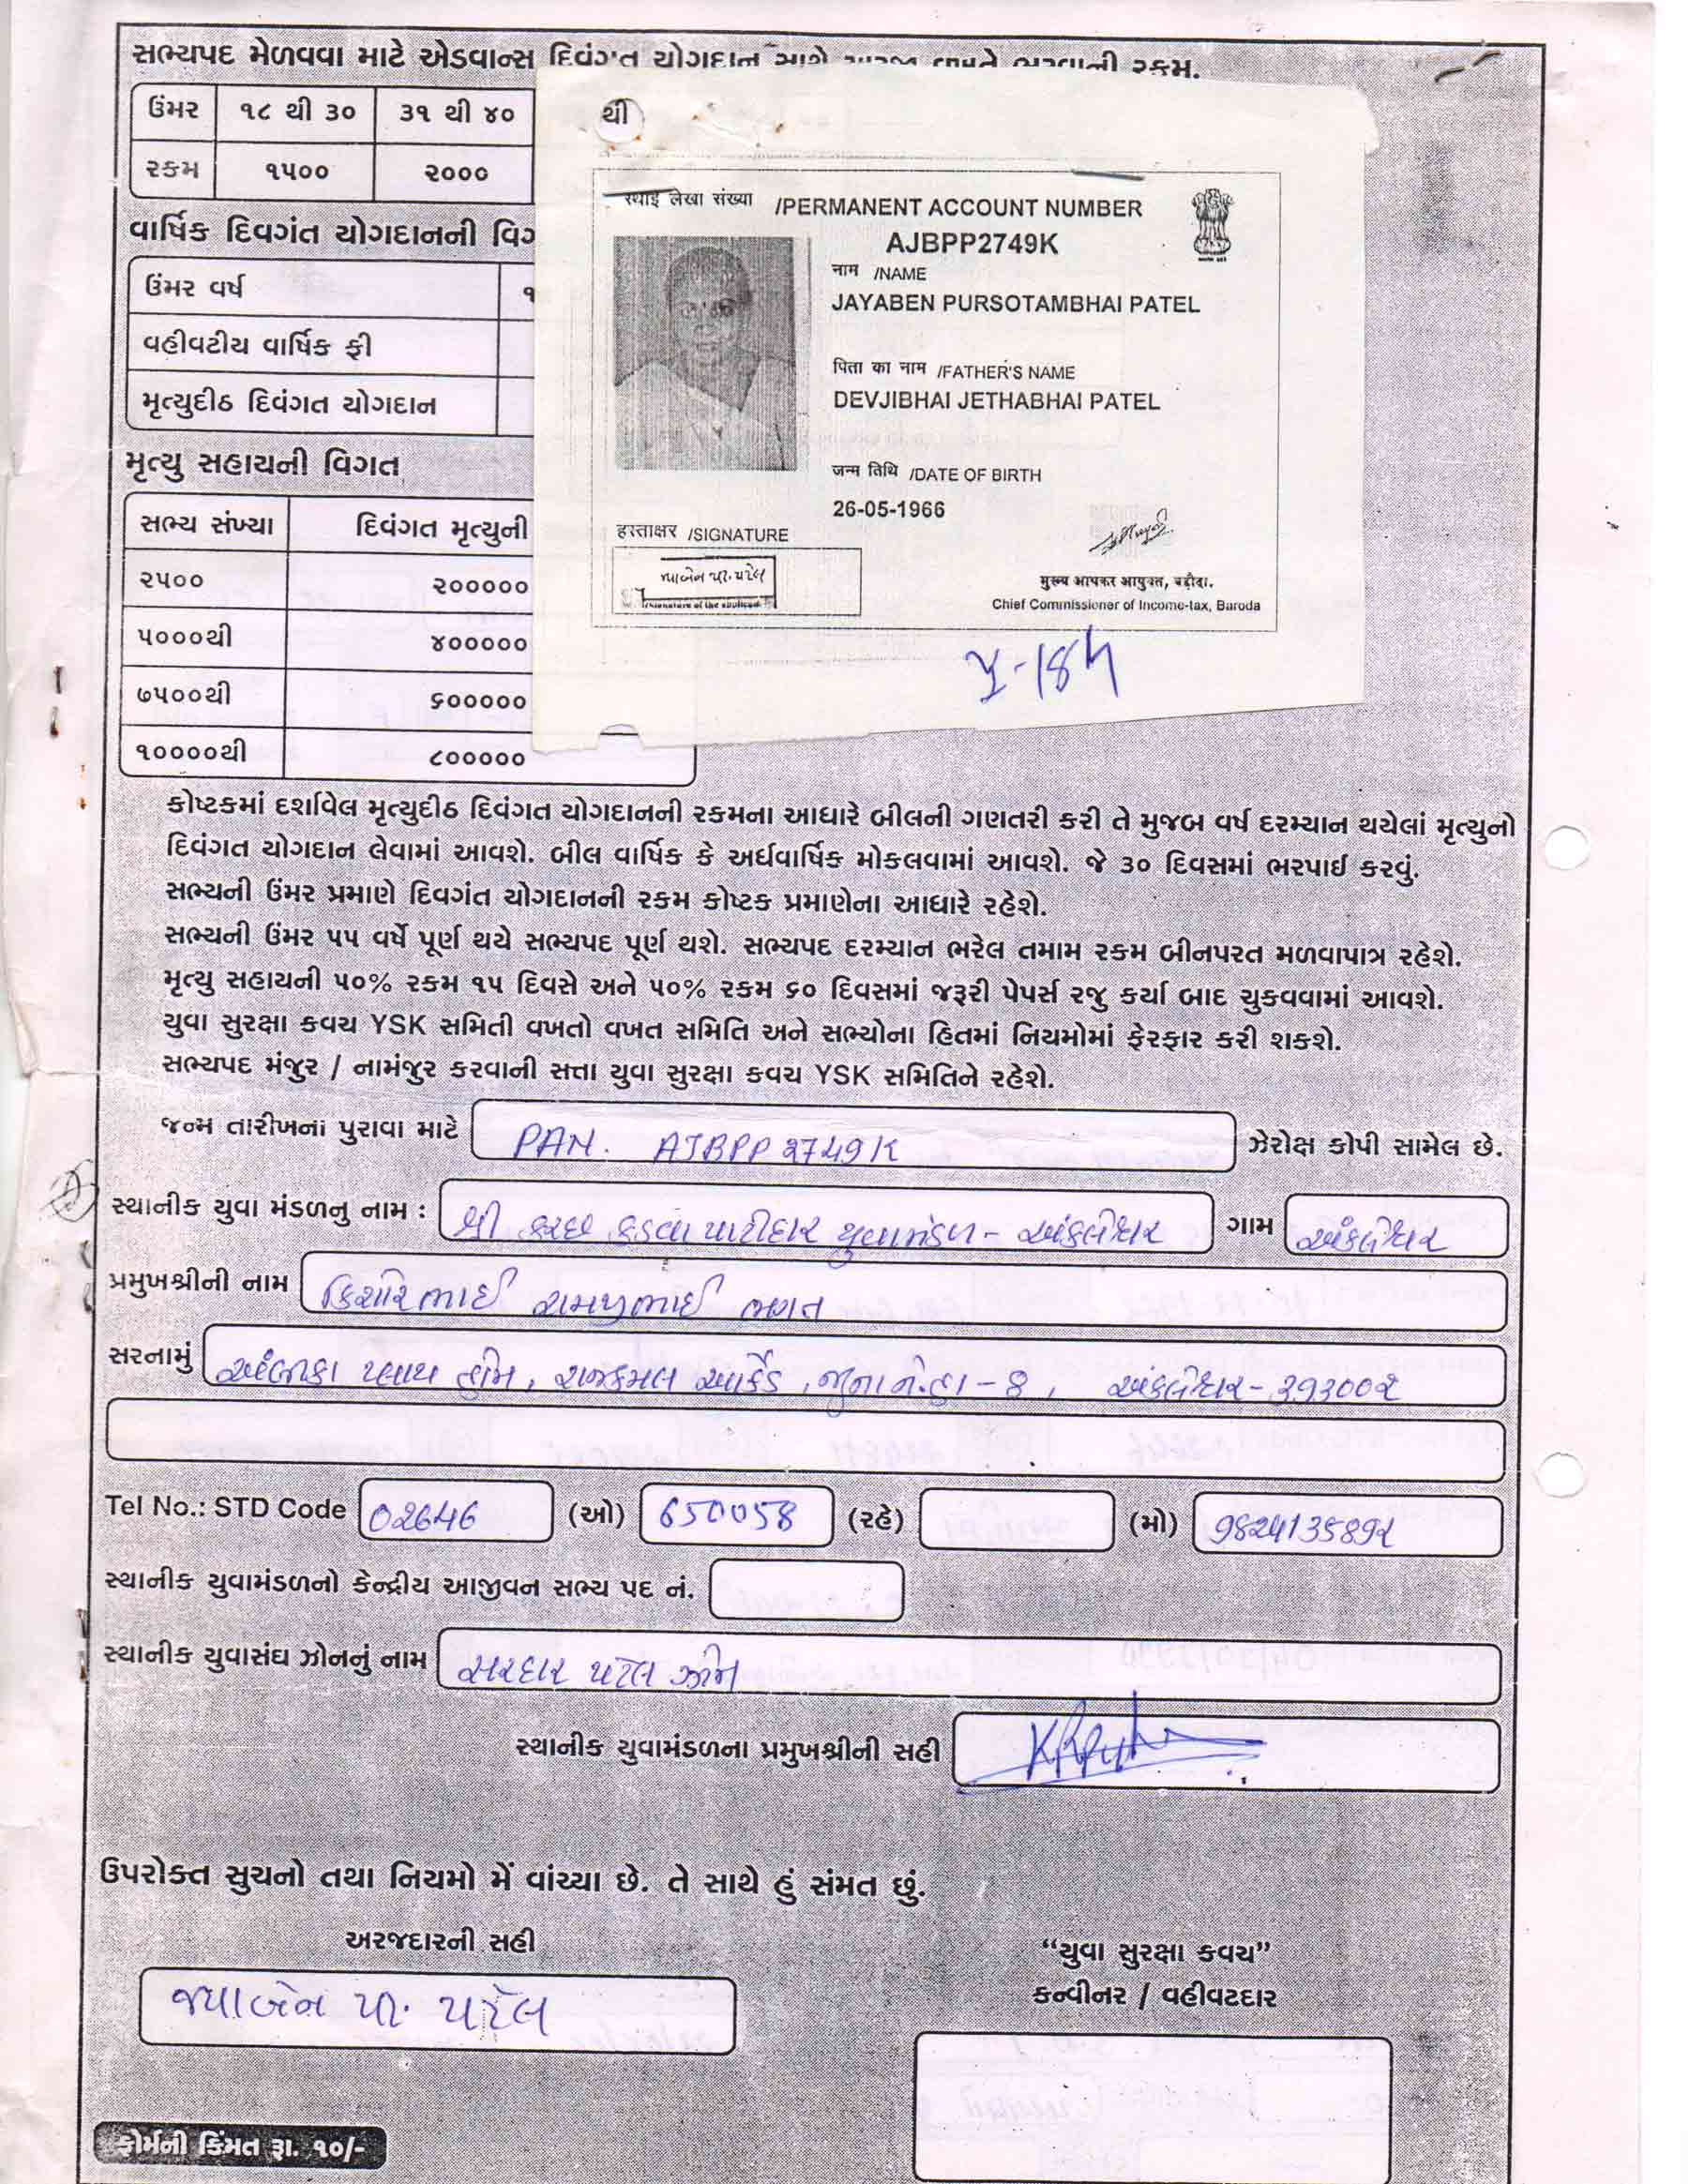 સભ્યપદ મેળવવા માટે એડવાન્સ દિવંગત યોગદાન સાથે ભરવાની રકમ.
ઉંમર ૧૮ થી ૩૦ ૩૧ થી ૪૦ થી
રકમ ૧૫૦૦ ૨૦૦૦
વાર્ષિક દિવગંત યોગદાનની
ઉંમર વર્ષ
વહીવટીય વાર્ષિક ફી
મૃત્યુદીઠ દિવંગત યોગદાન
મૃત્યુ સહાયની વિગત
સભ્ય સંખ્યા દિવંગત મૃત્યુની
૨૫૦૦ ૨૦૦૦૦૦
૫૦૦૦થી ૪૦૦૦૦૦
૭૫૦૦થી ૬૦૦૦૦૦
૧૦૦૦૦થી ૮૦૦૦૦૦
स्थाई लेखा संख्या /PERMANENT ACCOUNT NUMBER
AJBPP2749K
नाम /NAME
JAYABEN PURSOTAMBHAI PATEL
पिता का नाम /FATHER'S NAME
DEVJIBHAI JETHABHAI PATEL
जन्म तिथि /DATE OF BIRTH
26-05-1966
हस्ताक्षर /SIGNATURE
मुख्य आयकर आयुक्त, बड़ौदा.
Chief Commissioner of Income-tax, Baroda
કોષ્ટકમાં દર્શાવેલ મૃત્યુદીઠ દિવંગત યોગદાનની રકમના આધારે બીલની ગણતરી કરી તે મુજબ વર્ષ દરમ્યાન થયેલાં મૃત્યુનો
દિવંગત યોગદાન લેવામાં આવશે. બીલ વાર્ષિક કે અર્ધવાર્ષિક મોકલવામાં આવશે. જે ૩૦ દિવસમાં ભરપાઈ કરવું.
સભ્યની ઉંમર પ્રમાણે દિવગંત યોગદાનની રકમ કોષ્ટક પ્રમાણેના આધારે રહેશે.
સભ્યની ઉંમર ૫૫ વર્ષે પૂર્ણ થયે સભ્યપદ પૂર્ણ થશે. સભ્યપદ દરમ્યાન ભરેલ તમામ રકમ બીનપરત મળવાપાત્ર રહેશે.
મૃત્યુ સહાયની ૫૦% રકમ ૧૫ દિવસે અને ૫૦% રકમ ૬૦ દિવસમાં જરૂરી પેપર્સ રજુ કર્યા બાદ ચુકવવામાં આવશે.
યુવા સુરક્ષા કવચ YSK સમિતી વખતો વખત સમિતિ અને સભ્યોના હિતમાં નિયમોમાં ફેરફાર કરી શકશે.
સભ્યપદ મંજુર / નામંજુર કરવાની સત્તા યુવા સુરક્ષા કવચ YSK સમિતિને રહેશે.
જન્મ તારીખના પુરાવા માટે PAN. AJBPP2749K ઝેરોક્ષ કોપી સામેલ છે.
સ્થાનીક યુવા મંડળનુ નામ : શ્રી કચ્છ કડવા પાટીદાર યુવામંડળ - અંકલેશ્વર ગામ અંકલેશ્વર
પ્રમુખશ્રીની નામ કિશોરભાઈ રામજીભાઈ ભગત
સરનામું અંબિકા પ્લાય હોમ, રાજકમલ આર્કેડ, જુના ને.હા-૮, અંકલેશ્વર-393002
Tel No.: STD Code 02646 (ઓ) 650058 (રહે) (મો) 9824135892
સ્થાનીક યુવામંડળનો કેન્દ્રીય આજીવન સભ્ય પદ નં.
સ્થાનીક યુવાસંઘ ઝોનનું નામ સરદાર પટેલ ઝોન
સ્થાનીક યુવામંડળના પ્રમુખશ્રીની સહી
ઉપરોક્ત સુચનો તથા નિયમો મેં વાંચ્યા છે. તે સાથે હું સંમત છું.
અરજદારની સહી
જયાબેન પી. પટેલ
“યુવા સુરક્ષા કવચ”
કન્વીનર / વહીવટદાર
ફોર્મની કિંમત રૂા. ૧૦/-